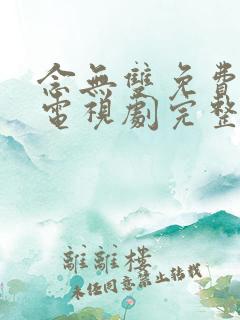 念無雙免費
電視劇完整
離離樓
未經同意禁止转载